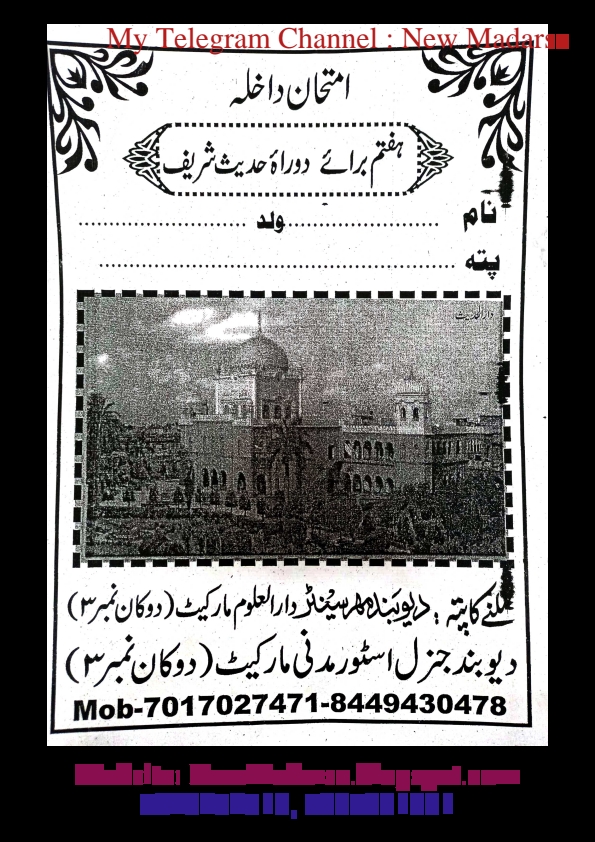 My Telegram Channel : New Madarsa
امتحان داخلہ
ہفتم برائے دوراۂ حدیث شریف
نام ........................ ولد ........................
پتہ ........................................................
دارالحدیث
ملنے کا پتہ : دیوبند مہر سینٹر دارالعلوم مارکیٹ (دوکان نمبر ۳)
دیوبند جنرل اسٹور مدنی مارکیٹ (دوکان نمبر ۳)
Mob-7017027471-8449430478